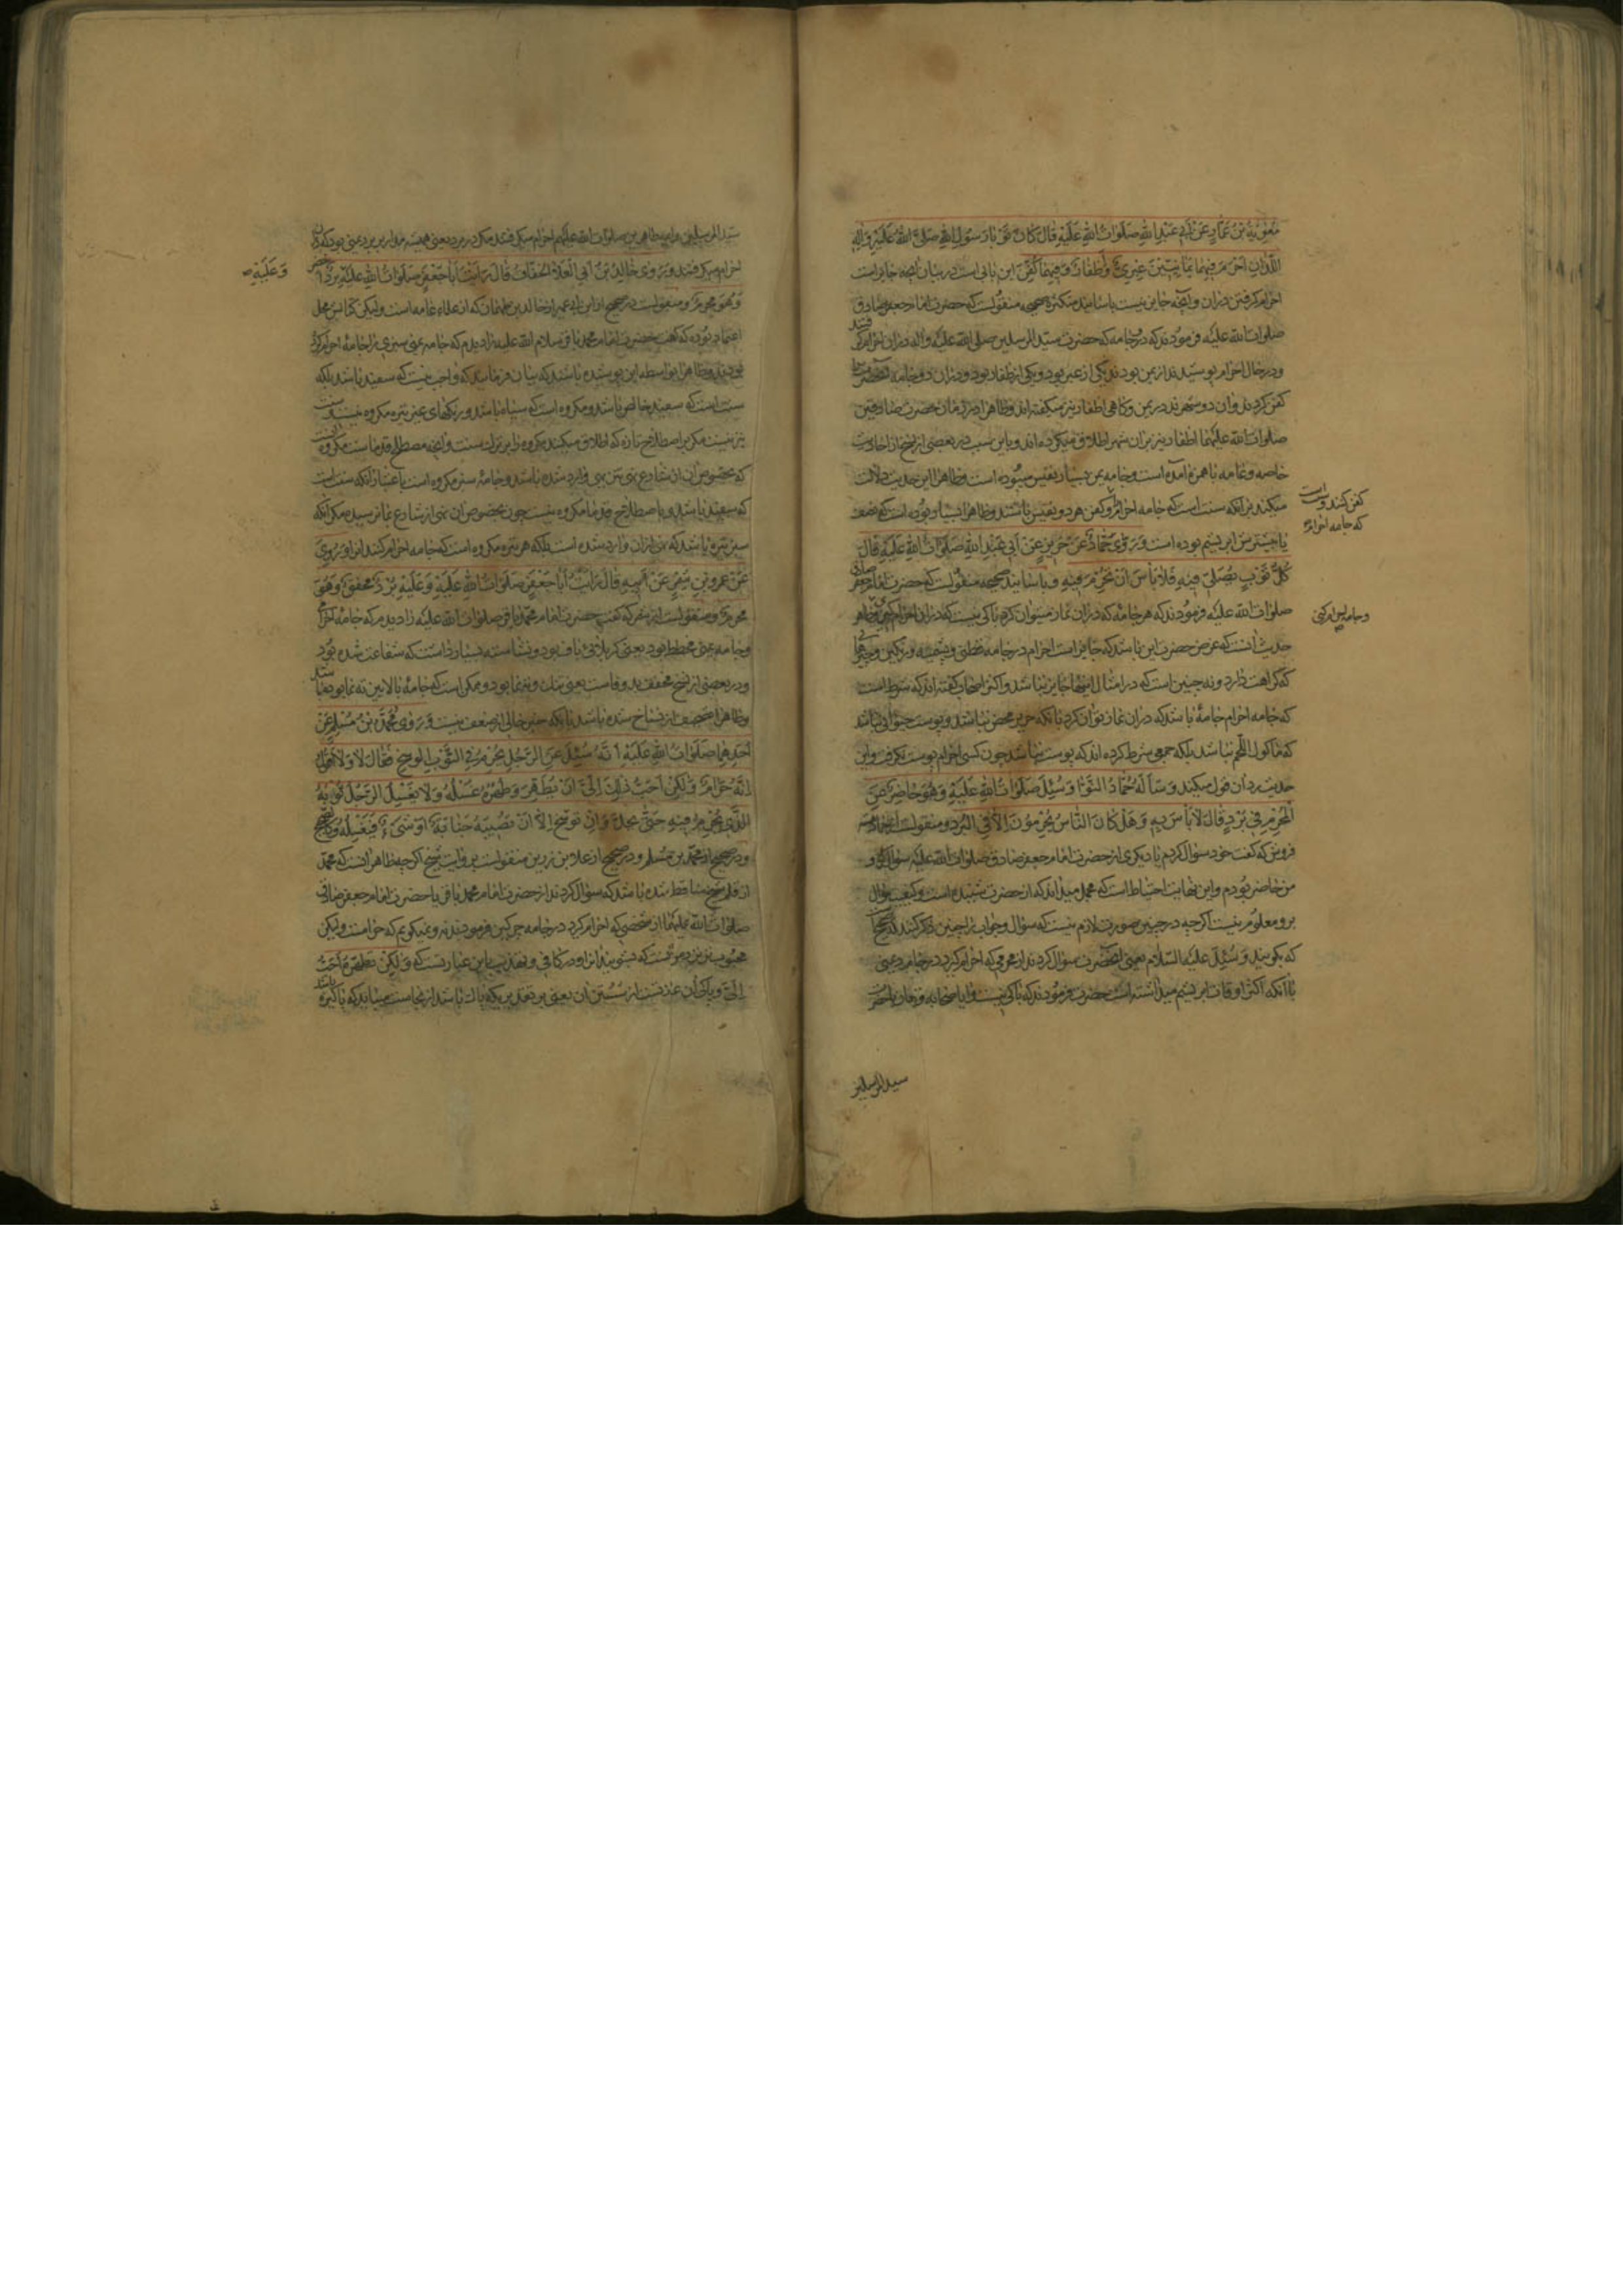 مُعٰوِيَةُ بْنُ عَمَّارٍ عَنْ أَبِي عَبْدِ اللّٰهِ صَلَوَاتُ اللّٰهِ عَلَيْهِ قَالَ كَانَ ثَوْبَا رَسُولِ اللّٰهِ صَلَّى اللّٰهُ عَلَيْهِ وَآلِهِ
اللَّذَانِ أَحْرَمَ فِيهِمَا يَمَانِيَّيْنِ عِبْرِيٌّ وَأَظْفَارٌ وَفِيهِمَا كُفِّنَ این بابی است در بیان آنچه جایز است
احرام گرفتن در آن و آنچه جایز نیست باسانید متکثره صحیحه منقولست که حضرت امام جعفر صادق
صلوات اللّٰه علیه فرمودند که دو جامه که حضرت سید المرسلین صلی اللّٰه علیه وآله در آن احرام گرفتند
و در حال احرام پوشیدند از یمن بودند یکی از عبر بود و یکی از ظفار بود و در آن دو جامه آنحضرت را
کفن کردند و آن دو شهرند در یمن و گاهی اظفار نیز میگفته اند و ظاهرا در زمان حضرت صادقین
صلوات اللّٰه علیهما اظفار نیز بر آن شهر اطلاق میکرده اند و باین سبب در بعضی از نسخ از احادیث
خاصه و عامه با همزه آمده است و جامه یمن بسیار نفیس میبوده است و ظاهرا این حدیث دلالت
میکند بر آنکه سنت است که جامه احرام و کفن هر دو نفیس باشند و ظاهرا بسیار بوده است که
کفن کنند و
که جامه احرام
یا بیشترش ابریشم بوده است وَرَوٰى حَمَّادٌ عَنْ حَرِيزٍ عَنْ أَبِي عَبْدِ اللّٰهِ صَلَوَاتُ اللّٰهِ عَلَيْهِ قَالَ
كُلُّ ثَوْبٍ تُصَلِّي فِيهِ فَلَا بَأْسَ أَنْ تُحْرِمَ فِيهِ و باسانید صحیحه منقولست که حضرت امام جعفر صادق
صلوات اللّٰه علیه فرمودند که هر جامهٔ که در آن نماز میتوان کرد باکی نیست که در آن احرام گیری و ظاهر
حدیث آنست که غرض حضرت این باشد که جایز است احرام در جامه قطنی و پشمینه و رنگین و
که کراهت دارد و نه چنین است که در امثال اینها جایز نباشد و اکثر اصحاب گفته اند که شرط است
که جامه احرام جامهٔ باشد که در آن نماز توان کرد بآنکه حریر محض نباشد و پوست حیوانی نباشد
که ماکول اللحم نباشد بلکه جمعی شرط کرده اند که پوست نباشد چون کسی احرام پوست نگرفت و این
حدیث رد آن قول میکند وَسَأَلَهُ حَمَّادٌ النَّوَّا وَسُئِلَ صَلَوَاتُ اللّٰهِ عَلَيْهِ وَهُوَ حَاضِرٌ عَنِ
الْمُحْرِمِ فِي بُرْدٍ قَالَ لَا بَأْسَ بِهِ وَهَلْ كَانَ النَّاسُ يُحْرِمُونَ إِلَّا فِي الْبُرْدِ و منقولست از حماد
فروش که گفت خود سؤال کردم یا دیگری از حضرت امام جعفر صادق صلوات اللّٰه علیه سؤال کرد و
من حاضر بودم و این نهایت احتیاط است که مجمل میداند که از حضرت شنیده است و کیفیت سؤال
برو معلوم نیست اگرچه در چنین صورت لازم نیست که سؤال و جواب را چنین ذکر کنند که
که بگویند وَسُئِلَ علیه السّلام یعنی از آنحضرت سؤال کردند از محرمی که احرام گیرد در جامه برد یمنی
با آنکه اکثر اوقات ابریشم میداشته است حضرت فرمودند که باکی نیست و آیا صحابه در زمان حضرت
سید المرسلین
سید المرسلین و ائمه طاهرین صلوات اللّٰه علیهم احرام میگرفتند مگر در برد یعنی همیشه مدار بر برد یمنی بود که در آن
احرام میگرفتند وَرَوٰى خَالِدُ بْنُ أَبِي الْعَلَاءِ الْخَفَّافُ قَالَ رَأَيْتُ أَبَا جَعْفَرٍ صَلَوَاتُ اللّٰهِ عَلَيْهِ بُرْدٌ أَخْضَرُ
وَعَلَيْهِ
وَهُوَ مُحْرِمٌ و منقولست در صحیح از ابن ابی عمیر از خالد بن طهمان که از علماء عامه است ولیکن کتابش محل
اعتماد بوده که گفت حضرت امام محمد باقر سلام اللّٰه علیه را دیدم که جامه یمنی سبزی را جامهٔ احرام کرده
بودند و ظاهرا بواسطه این پوشیده باشند که بیان فرمایند که واجب نیست که سفید باشد بلکه
سنت است که سفید خالص باشد و مکروه است که سیاه باشد و رنگهای غیر تیره مکروه نیست
نیز نیست مگر بر اصطلاح تازه که اطلاق میکنند مکروه را بر ترک سنت و آنچه مصطلح قدماست مکروه آنست
که بخصوص آن از شارع نهی وارد شده باشد و جامهٔ سبز مکروه است باعتبار آنکه سنت است
که سفید باشد و باصطلاح قدما مکروه نیست چون بخصوص آن نهی از شارع بما نرسیده مگر آنکه
سبز تیره باشد که نهی از آن وارد شده است بلکه هر تیره مکروه است که جامه احرام کنند آنرا وَرُوِيَ
عَنْ عَمْرِو بْنِ شِمْرٍ عَنْ أَبِيهِ قَالَ رَأَيْتُ أَبَا جَعْفَرٍ صَلَوَاتُ اللّٰهِ عَلَيْهِ وَعَلَيْهِ بُرْدٌ مُخَفَّقٌ وَهُوَ
مُحْرِمٌ و منقولست از شمر که گفت حضرت امام محمد باقر صلوات اللّٰه علیه را دیدم که جامه احرام
و جامه یمنی مخطط بود
و در بعضی از نسخ مخفف بدو فاست یعنی تنک و ممکن است که جامهٔ بالائین ته نما بوده باشد
و ظاهرا تصحیف از نساخ شده باشد با آنکه خبر خالی از ضعف نیست وَرَوٰى مُحَمَّدُ بْنُ مُسْلِمٍ عَنْ
أَحَدِهِمَا صَلَوَاتُ اللّٰهِ عَلَيْهِ أَنَّهُ سُئِلَ عَنِ الرَّجُلِ يُحْرِمُ فِي الثَّوْبِ الْوَسِخِ فَقَالَ لَا وَلَا أَقُولُ
إِنَّهُ حَرَامٌ وَلٰكِنْ أُحِبُّ ذٰلِكَ إِلَيَّ أَنْ يُطَهَّرَ وَطَهُورُهُ غَسْلُهُ وَلَا يَغْسِلُ الرَّجُلُ ثَوْبَهُ
الَّذِي يُحْرِمُ فِيهِ حَتَّى يَحِلَّ وَإِنْ تَوَسَّخَ إِلَّا أَنْ تُصِيبَهُ جَنَابَةٌ أَوْ شَيْءٌ فَيَغْسِلُهُ
و در صحیح از محمد بن مسلم و در صحیح از علا بن رزین منقولست بروایت شیخ اگرچه ظاهر آنست که محمد
از قلم شیخ ساقط شده باشد که سؤال کردند از حضرت امام محمد باقر یا حضرت امام جعفر صادق
صلوات اللّٰه علیهما از شخصی که احرام گیرد در جامه چرکین فرمودند نه و نمیگویم که حرامست ولیکن
محبوب‌تر نزد من آنست که بشویند آنرا و در کافی و تهذیب باین عبارتست که وَلٰكِنْ تُطَهِّرُهُ أَحَبُّ
إِلَيَّ و پاکی آن عبارتست از شستن آن یعنی بر تقدیریکه پاک باشد از نجاست میباید که پاکیزه باشد